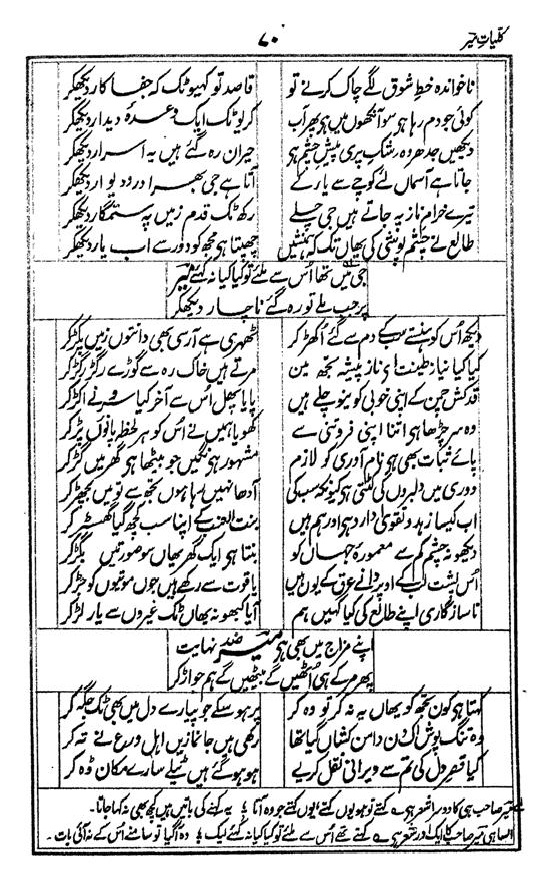 کلیاتِ میر
۷۰
ناخواندہ خطِ شوق لگے چاک کرنے تو قاصد تو کہیو ٹک کہ جفا کار دیکھکر
کوئی جو دم رہا ہو سو آنکھوں میں ہو پھر اب کریو ٹک ایک وعدۂ دیدار دیکھکر
دیکھیں جدھر وہ رشکِ پری پیشِ چشم ہو حیران رہ گئے ہیں یہ اسرار دیکھکر
جاتا ہے آسماں لئے کوچے سے یار کے آتا ہے جی بھرا در و دیوار دیکھکر
تیرے خرامِ ناز پہ جاتے ہیں جی چلے رکھ ٹک قدم زمیں پہ ستمگار دیکھکر
طالع نے چشم پوشی کی یھاں تک کہ ہمنشیں چھپتا ہو مجھ کو دور سے اب یار دیکھکر
جی میں تھا اُس سے ملئے تو کیا کیا نہ کہئے میر
پر جب ملے تو رہ گئے ناچار دیکھکر
دیکھ اُس کو ہنستے سب کے دم سے گئے اکھڑ کر ٹھہری ہے آرسی بھی دانتوں زمیں پکڑ کر
کیا کیا نیاز طینت اے ناز پیشہ تجھ بن مرتے ہیں خاک رہ سے گوڑے رگڑ رگڑ کر
قد کش چمن کے اپنی خوبی کو نیو چلے ہیں پایا پھل اُس سے آخر کیا سرو نے اکڑ کر
وہ سر چڑھا ہو اتنا اپنی فروتنی سے کھویا ہمیں نے اُس کو ہر لحظہ پانوں پڑ کر
پائے ثبات بھی ہو نام آوری کو لازم مشہور ہو نگیں جو بیٹھا ہو گھر میں گڑ کر
دوری میں دلبروں کی کٹتی ہو کیونکہ سب کی آدھا نہیں رہا ہوں تجھ سے تو میں بچھڑ کر
اب کیسا زہد و تقویٰ دارو ہو اور ہم ہیں بنت العنب کے اپنا سب کچھ گیا گھسڑ کر
دیکھو نہ چشم کم سے معمورۂ جہاں کو بنتا ہو ایک گھر یھاں سو صورتیں بگڑ کر
اُس پشتِ لب کے اوپر دانے عرق کے یوں ہیں یاقوت سے رکھے ہیں جوں موتیوں کو جڑ کر
ناسازگاری اپنے طالع کی کیا کہیں ہم آیا کبھو نہ یھاں ٹک غیروں سے یار لڑ کر
اپنے مزاج میں بھی ہو میر ضد نہایت
پھر مر کے ہی اُٹھیں گے بیٹھیں گے ہم جو اڑ کر
کہتا ہو کون تجھ کو یھاں یہ نہ کر تو وہ کر پر ہو سکے جو پیارے دل میں بھی ٹک جگہ کر
وہ تنگ پوش اک دن دامن کشاں گیا تھا رکھی ہیں جانمازیں اہل ورع نے تہ کر
کیا قصر دل کی تم سے ویرانی نقل کریے ہو ہو گئے ہیں ٹیلے سارے مکان ڈہ کر
میر صاحب ہی کا دوسرا شعر ہے۔ کہتے تو ہو یوں کہتے یوں کہتے جو وہ آتا ؛ یہ کہنے کی باتیں ہیں کچھ بھی نہ کہا جاتا۔
ایسا ہی میر صاحب کا ایک اور شعر ہے۔ کہتے تھے اُس سے ملئے تو کیا کیا نہ کہئے لیک ؛ وہ آگیا تو سامنے اُس کے نہ آئی بات۔